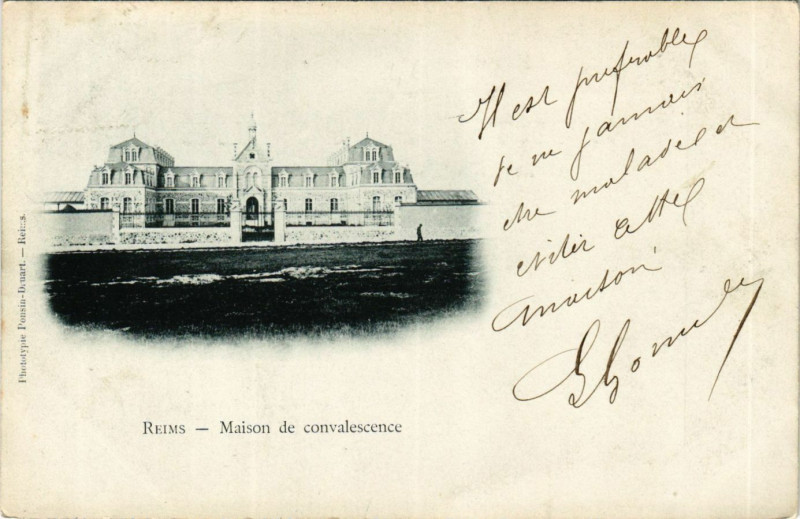 Il est préférable
de ne jamais
être malade et
éviter cette
maison
Phototypie Ponsin-Druart. — Reims.
REIMS — Maison de convalescence